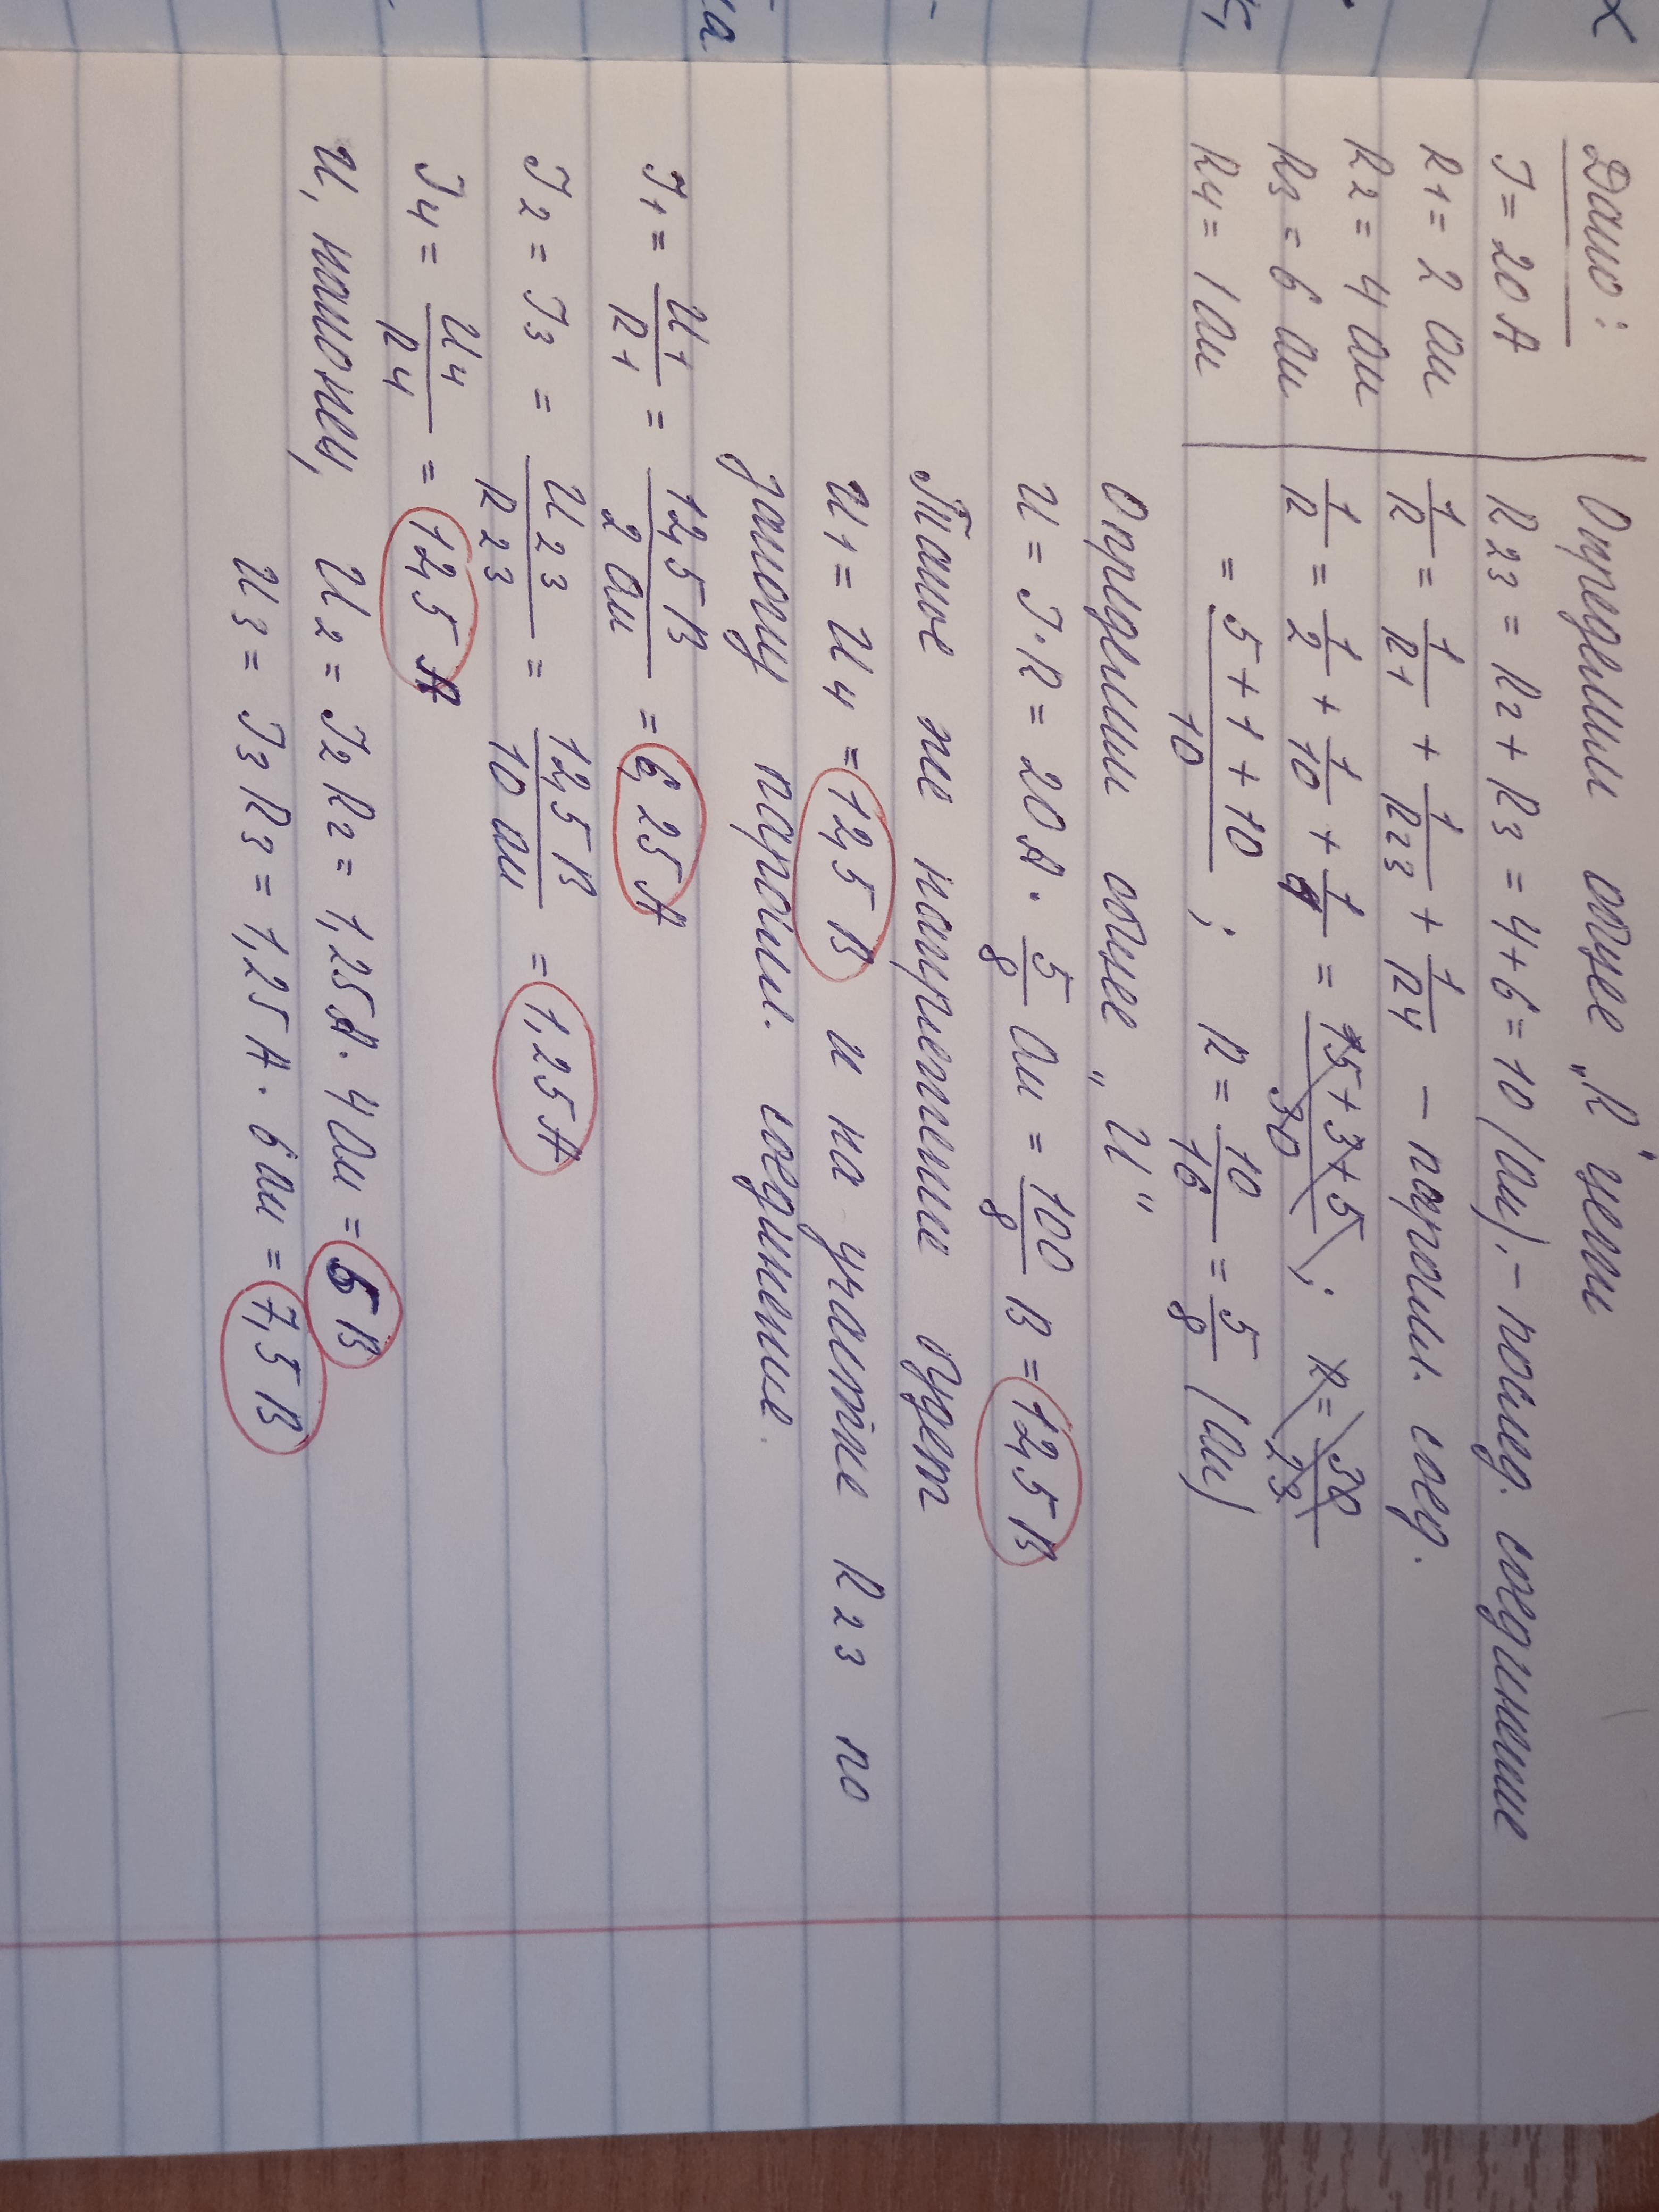 Дано:
I = 20 А
R1 = 2 Ом
R2 = 4 Ом
R3 = 6 Ом
R4 = 1 Ом
Определим общее „R" цепи
R23 = R2 + R3 = 4 + 6 = 10 (Ом); - послед. соединение
1/R = 1/R1 + 1/R23 + 1/R4 - паралл. соед.
1/R = 1/2 + 1/10 + 1/1 = 15+3+5/30 ; R = 30/23
= 5+1+10/10 ; R = 10/16 = 5/8 (Ом)
Определим общее „U"
U = I·R = 20А · 5/8 Ом = 100/8 В = 12,5 В
Такое же напряжение будет
U1 = U4 = 12,5 В и на участке R23 по
закону паралл. соединение.
I1 = U1/R1 = 12,5 В/2 Ом = 6,25 А
I2 = I3 = U23/R23 = 12,5 В/10 Ом = 1,25 А
I4 = U4/R4 = 12,5 А
И, наконец, U2 = I2 R2 = 1,25А · 4 Ом = 5 В
U3 = I3 R3 = 1,25 А · 6 Ом = 7,5 В